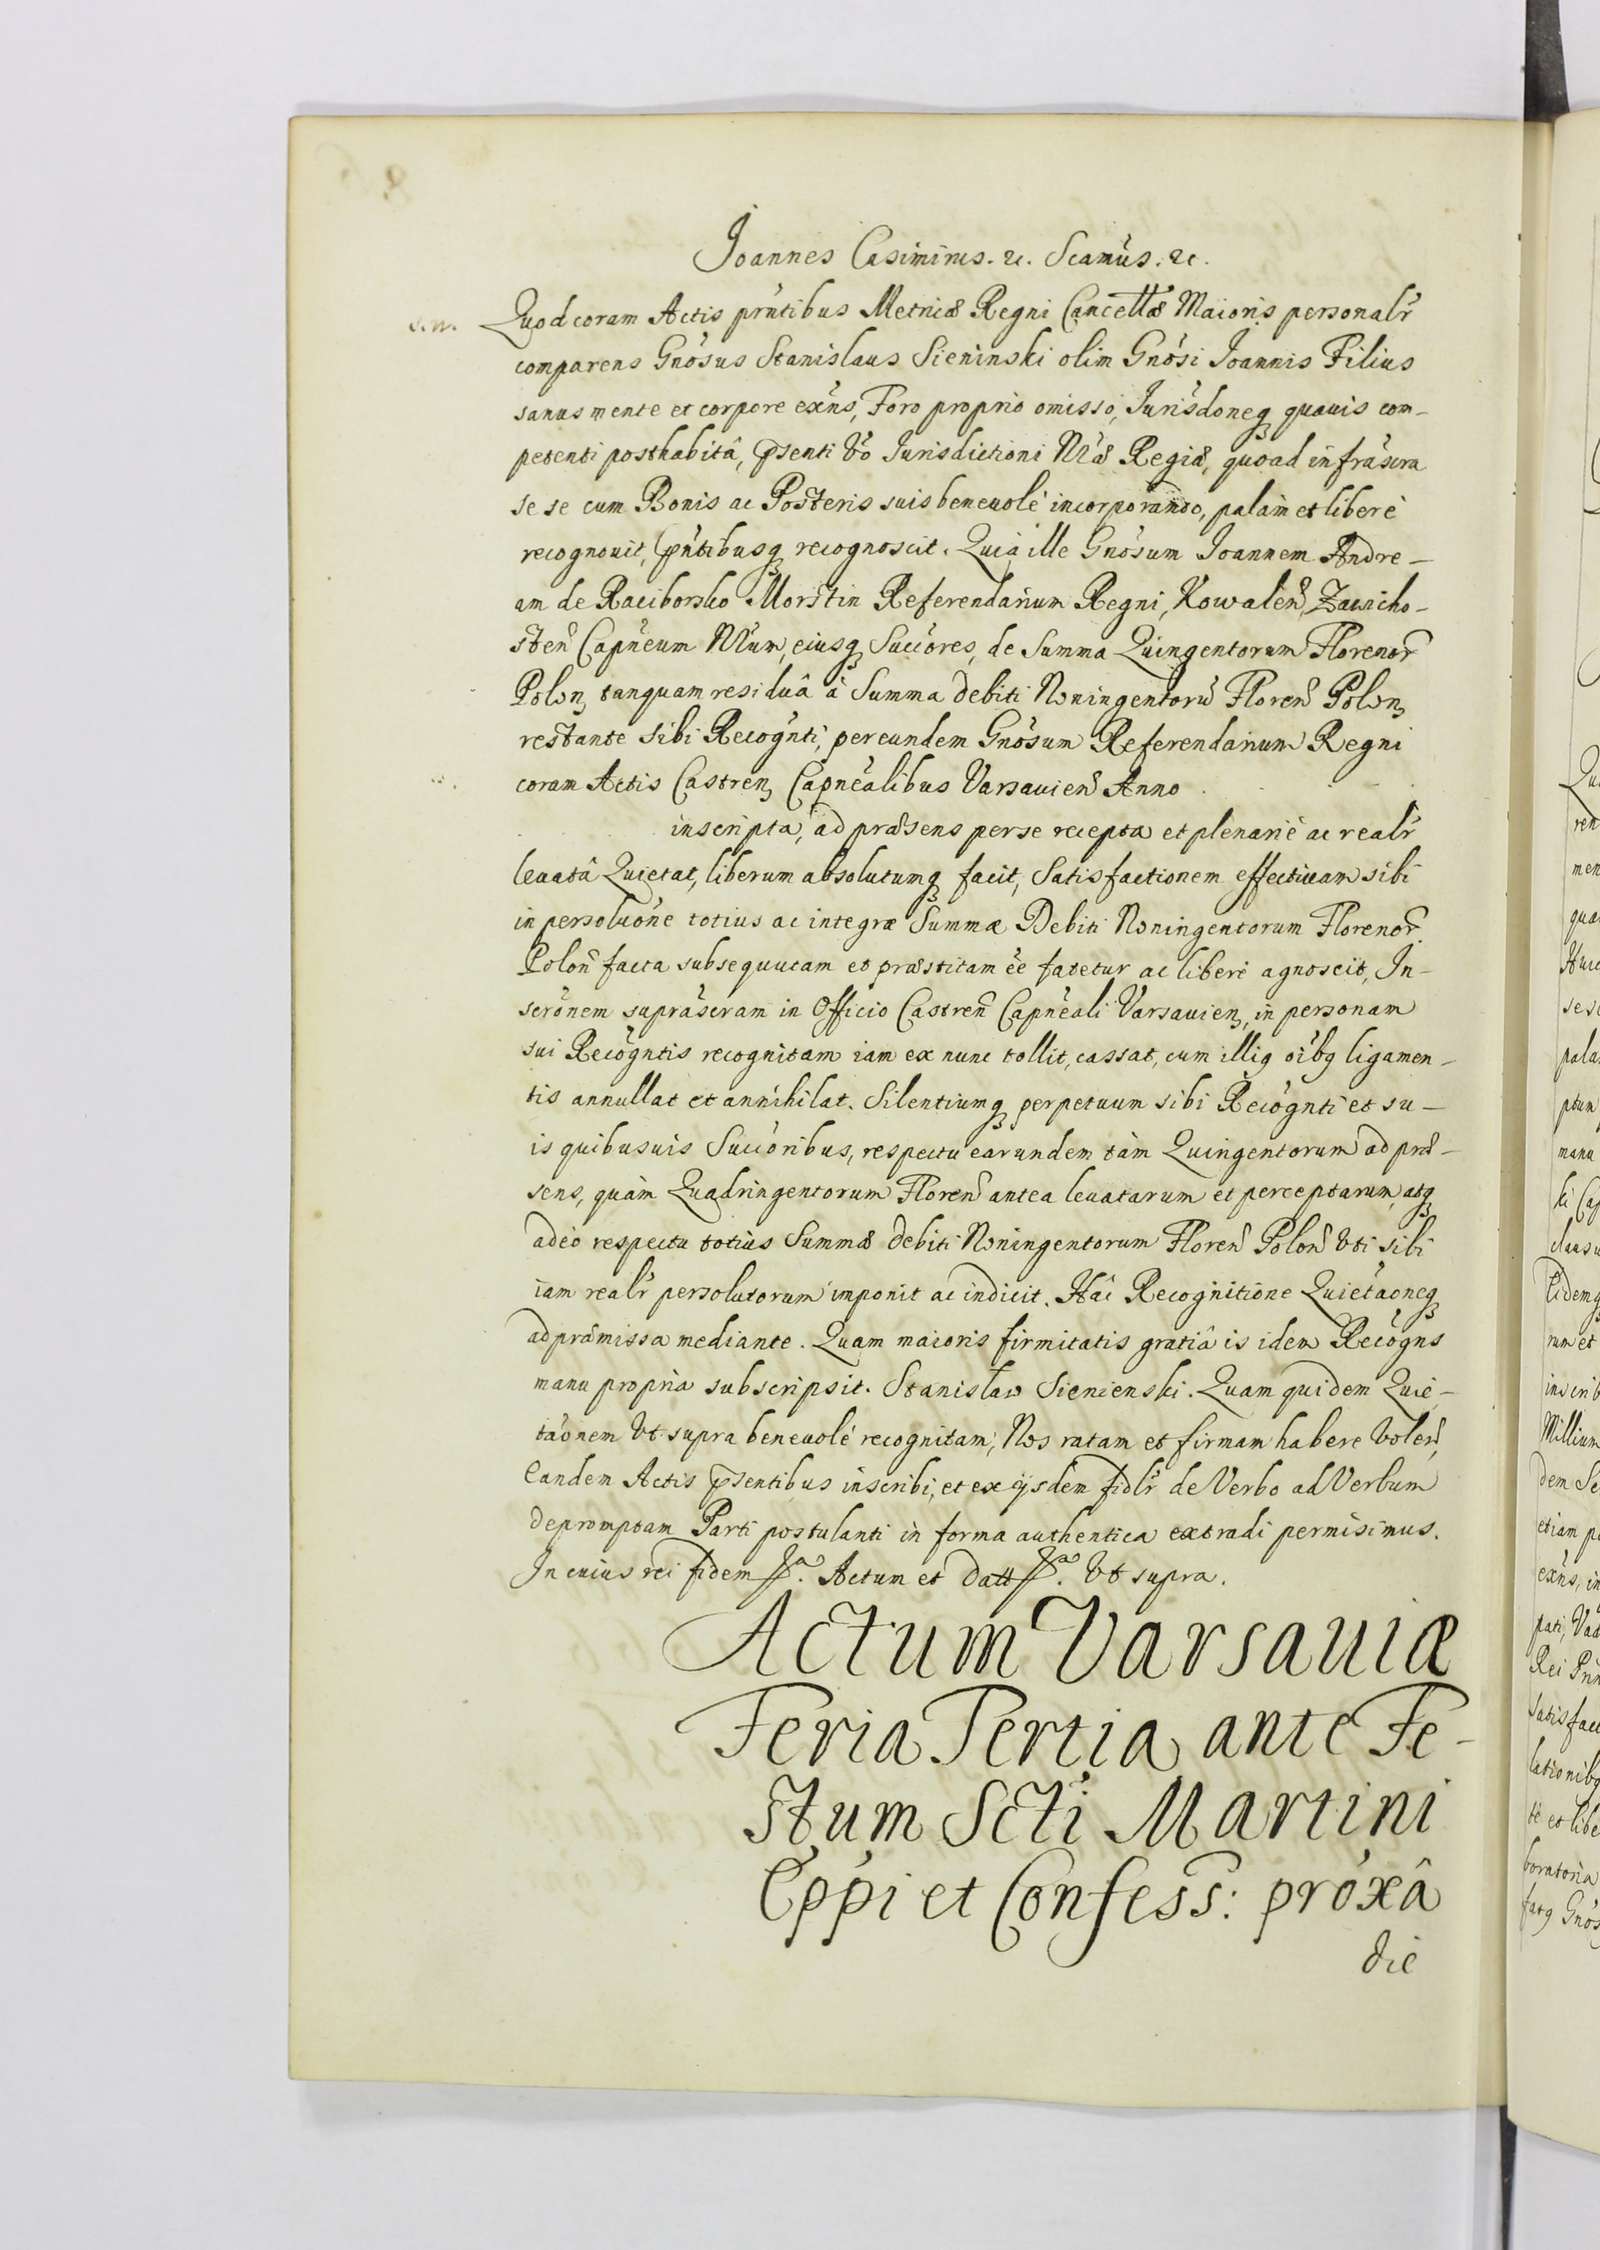 Joannes Casimirus. &c. Scamus. &c.
Quod coram Actis prntibus Metricæ Regni Cancellæ Maioris personalr
comparens Gnosus Stanislaus Sieninski olim Gnosi Joannis Filius
sanus mente et corpore exns, Foro proprio omisso, Jurisdoneq quavis com-
petenti posthabitâ, psenti vo Jurisdictioni Næ Regiæ, quoad infrascra
se se cum Bonis ac Posteris suis benevolé incorporando, palàm et liberè
recognovit, pntibusq recognoscit. Quia ille Gnosum Joannem Andre-
am de Raciborsko Morstin Referendarium Regni, Kowalen, Zawicho-
sten Capneum Nrum, eiusq Succores, de Summa Quingentorum Florenor
Polon, tanquam residuâ à Summa debiti Noningentoru Floren Polon,
restante sibi Recognti, per eundem Gnosum Referendarium Regni
coram Actis Castren, Capnealibus Varsavien Anno
inscripta, ad præsens per se recepta et plenariè ac realr
levatâ Quietat, liberum absolutumq facit, Satisfactionem effectivam sibi
in persoluone totius ac integræ Summæ Debiti Noningentorum Florenor
Polon facta subsequutam et præstitam ee fatetur ac liberè agnoscit, In-
scronem suprascram in Officio Castren Capneali Varsavien, in personam
sui Recogntis recognitam iam ex nunc tollit, cassat, cum illiq oibq ligamen-
tis annullat et annihilat. Silentiumq perpetuum sibi Recognti et su-
is quibusuis Succoribus, respectu earundem tàm Quingentorum ad præ-
sens, quàm Quadringentorum Floren antea levatarum et perceptarum, atq
adeò respectu totius Summæ debiti Noningentorum Floren Polon Vti sibi
iam realr persolutorum imponit ac indicit. Hâc Recognitione Quietaoneq
ad præmissa mediante. Quam maioris firmitatis gratiâ is idem Recogns
manu propria subscripsit. Stanisław Sienienski. Quam quidem Quie-
taonem Vt supra benevolé recognitam, Nos ratam et firmam habere Volen,
Eandem Actis psentibus inscribi, et ex ijsdem fidlr de Verbo ad Verbum
depromptam Parti postulanti in forma authentica extradi permisimus.
In cuius rei fidem &a. Actum et Datt &a. Vt supra.
Actum Varsauiæ
Feria Tertia ante Fe-
stum Scti Martini
Eppi et Confess: proxâ
die